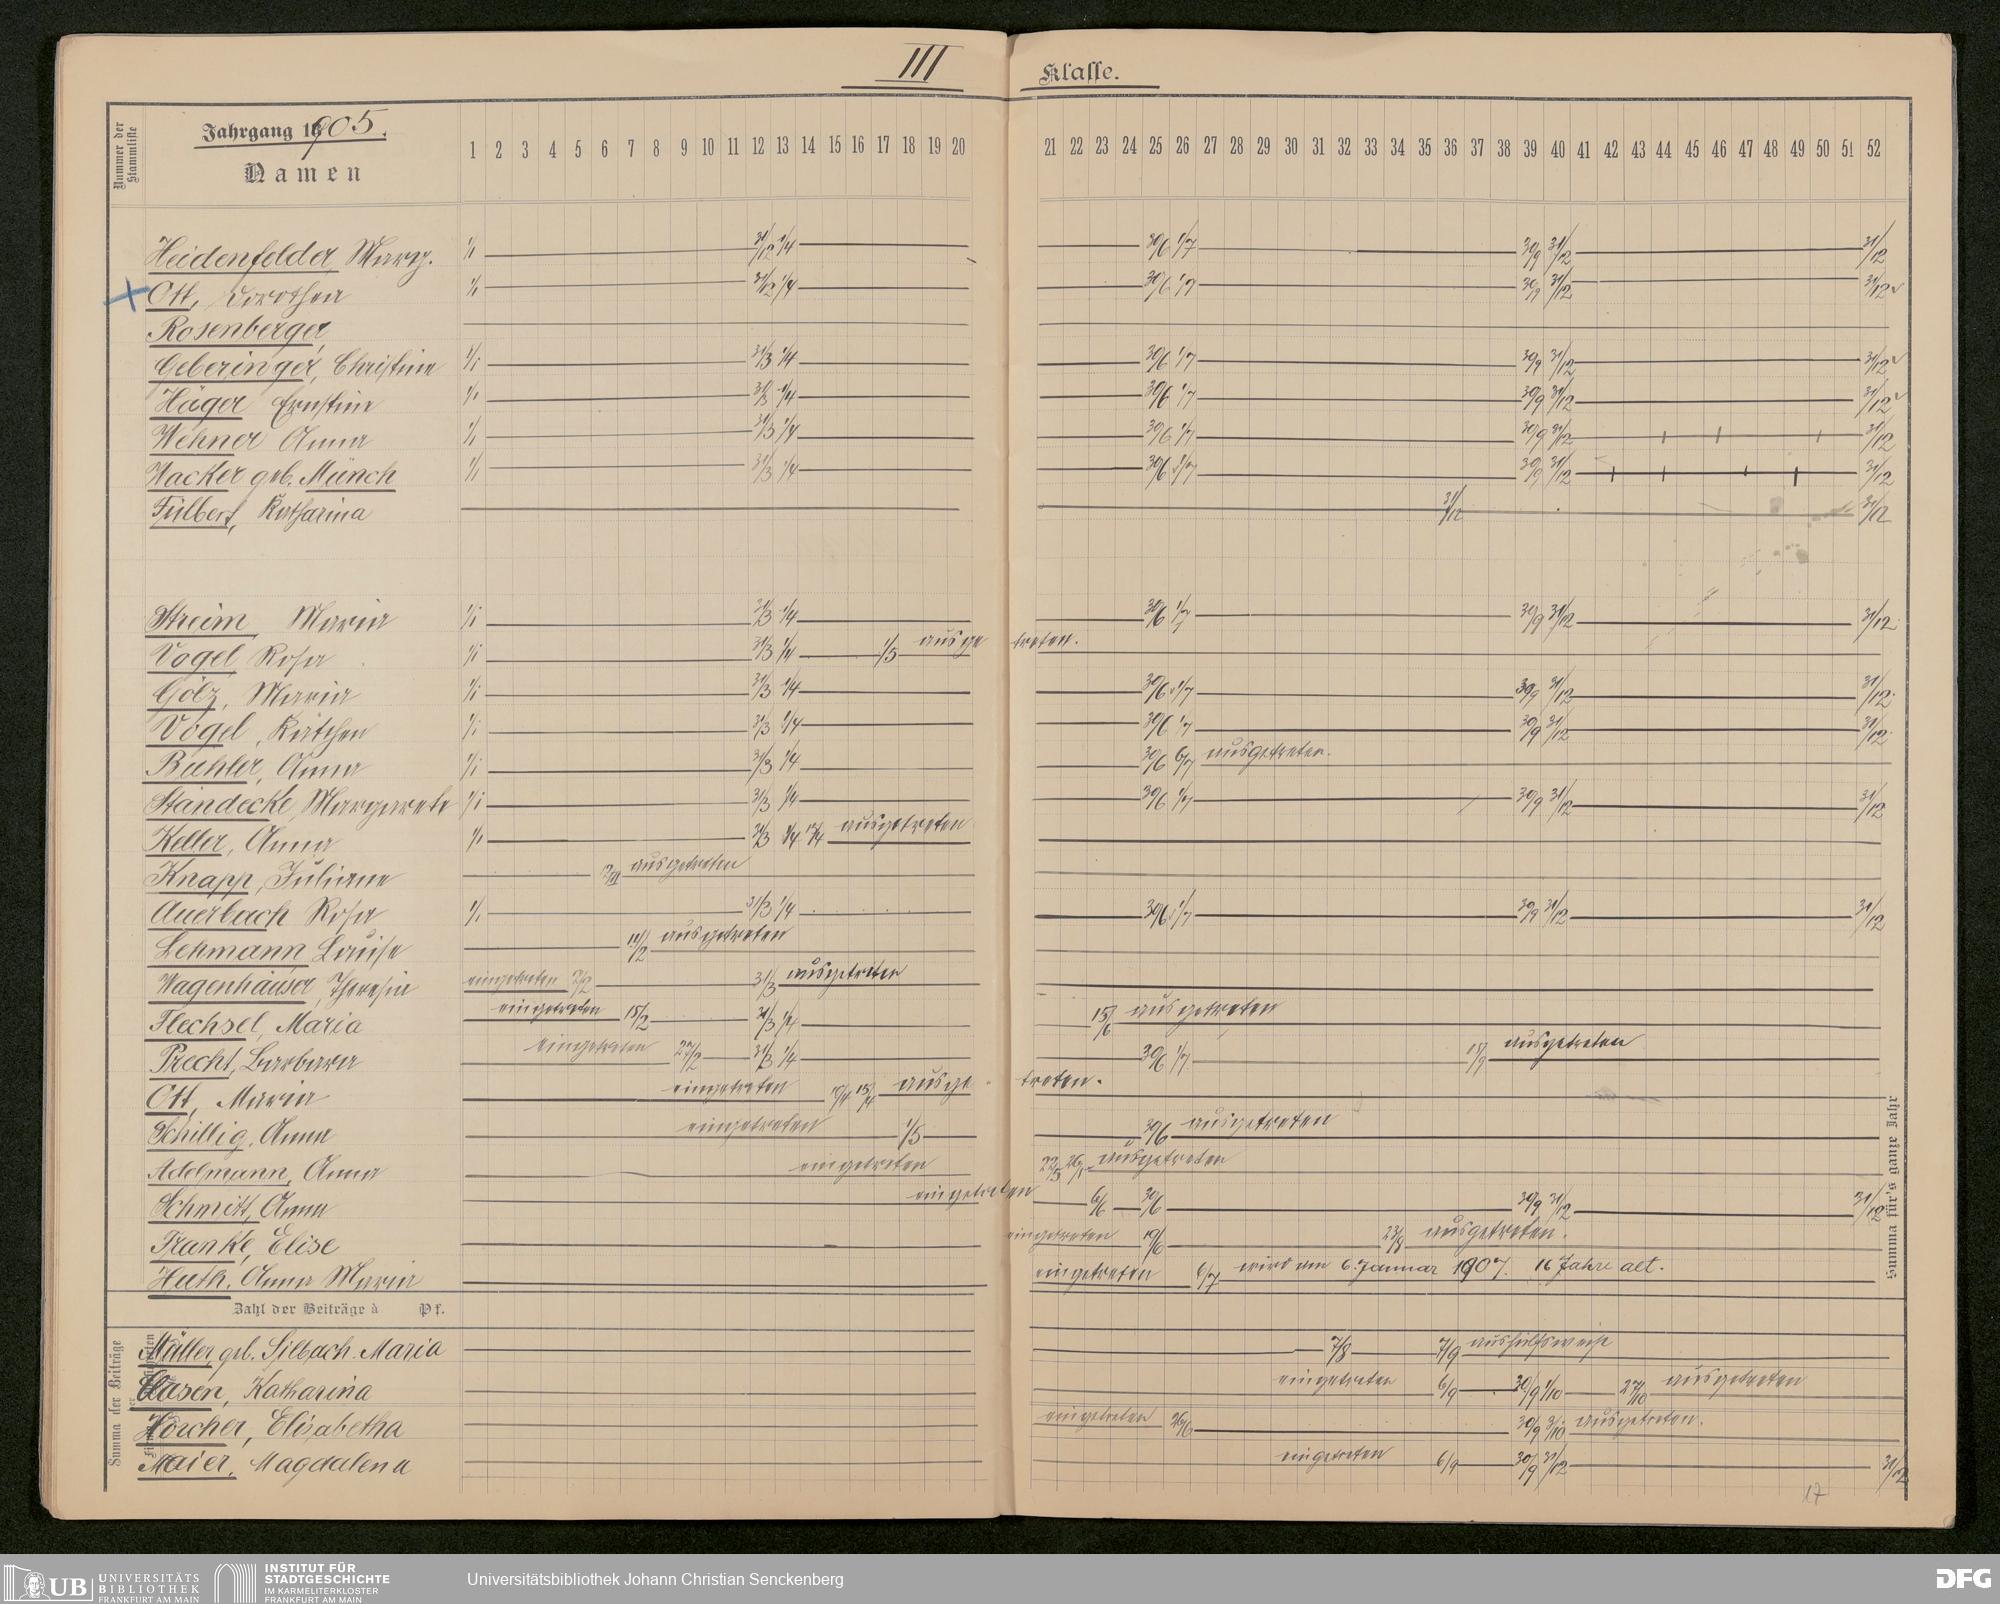 III Klasse.
Nummer der Stammliste
Jahrgang 1905.
Namen
1 2 3 4 5 6 7 8 9 10 11 12 13 14 15 16 17 18 19 20 21 22 23 24 25 26 27 28 29 30 31 32 33 34 35 36 37 38 39 40 41 42 43 44 45 46 47 48 49 50 51 52
Heidenfelder, Marg. 1/1 31/12 1/4 30/6 1/7 30/9 31/12 31/12
Ott, Dorothea 1/1 31/12 1/4 30/6 1/7 30/9 31/12 31/12
Rosenberger,
Geberinger, Christine 1/1 31/3 1/4 30/6 1/7 30/9 31/12 31/12
Häger Ernstine 1/1 31/3 1/4 30/6 1/7 30/9 31/12 31/12
Wehner Anna 1/1 31/3 1/4 30/6 1/7 30/9 31/12 31/12
Wacker geb. Münch 1/1 31/3 1/4 30/6 1/7 30/9 31/12 31/12
Fülbert, Katharina 31/12 31/12
Streim, Maria 1/1 31/3 1/4 30/6 1/7 30/9 31/12 31/12
Vogel, Rosa 1/1 31/3 1/4 1/5 ausgetreten.
Gölz, Maria 1/1 31/3 1/4 30/6 1/7 30/9 31/12 31/12
Vogel, Kätchen 1/1 31/3 1/4 30/6 1/7 30/9 31/12 31/12
Bühler, Anna 1/1 31/3 1/4 30/6 6/7 ausgetreten.
Ständecke, Margarete 1/1 31/3 1/4 30/6 1/7 30/9 31/12 31/12
Keller, Anna 1/1 31/3 1/4 14/4 ausgetreten
Knapp, Juliane ausgetreten
Auerbach Rosa 1/1 31/3 1/4 30/6 1/7 30/9 31/12 31/12
Lehmann Louise 14/2 ausgetreten
Wagenhäuser, Theresia eingetreten 7/2 31/3 ausgetreten
Flechsel, Maria eingetreten 15/2 31/3 1/4 15/6 ausgetreten
Precht, Barbara eingetreten 27/2 31/3 1/4 30/6 1/7 15/9 ausgetreten
Ott, Maria eingetreten 10/4 15/4 ausgetreten.
Schillig, Anna eingetreten 1/5 30/6 ausgetreten
Adelmann, Anna eingetreten 22/5 26/5 ausgetreten
Schmitt, Anna eingetreten 6/6 30/6 30/9 31/12 31/12
Franke, Elise eingetreten 19/6 23/8 ausgetreten.
Huth, Anna Maria eingetreten 6/7 wird am 6. Januar 1907. 16 Jahre alt.
Zahl der Beiträge à Pf.
Summa für's ganze Jahr
Summa der Beiträge
Müller, geb. Silbach. Maria 7/8 7/9 aushülfsweise
Clasen, Katharina eingetreten 6/9 30/9 1/10 27/10 ausgetreten
Horcher, Elisabetha eingetreten 26/6 30/9 3/10 ausgetreten.
Maier, Magdalena eingetreten 6/9 30/9 31/12 31/12
17
UB UNIVERSITÄTS BIBLIOTHEK FRANKFURT AM MAIN
INSTITUT FÜR STADTGESCHICHTE IM KARMELITERKLOSTER FRANKFURT AM MAIN
Universitätsbibliothek Johann Christian Senckenberg
DFG